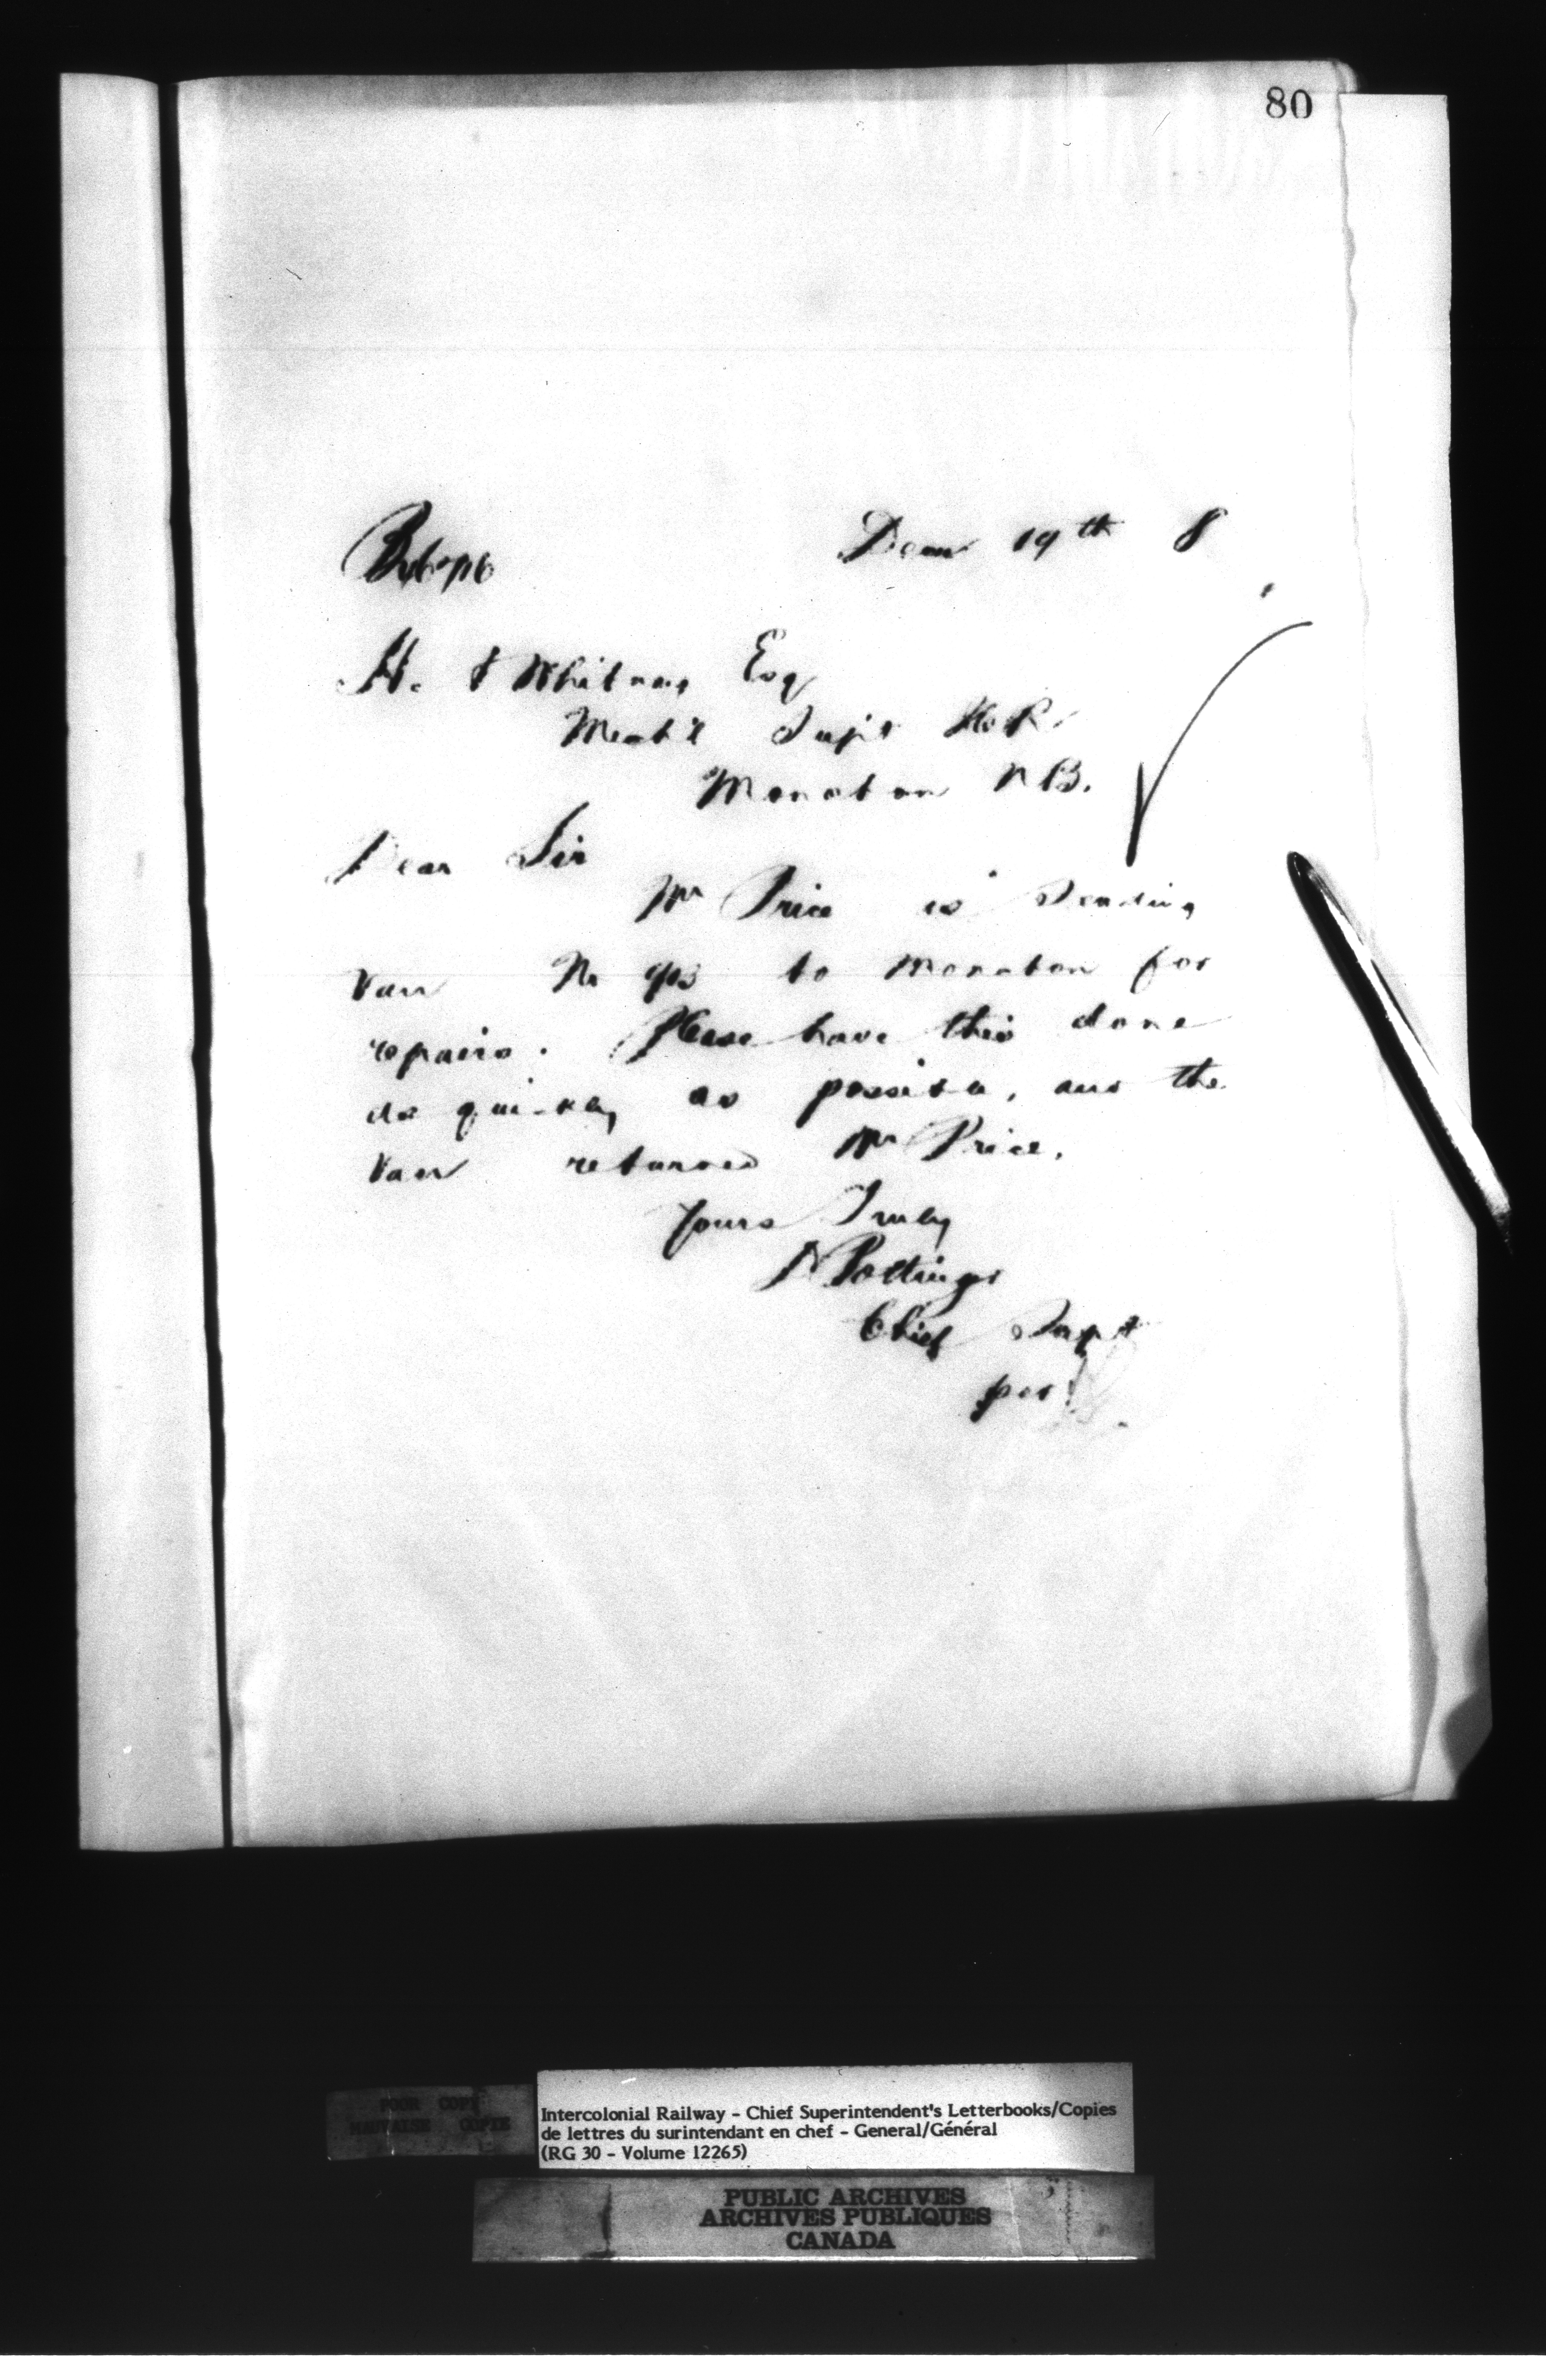 80
Decr 19th 8
H. A Whitney Esq
Mech'l Supt I.C.R.
Moncton N B.
Dear Sir
Mr Price is sending
Van No to Moncton for
repairs. Please have this done
as quickly as possible, and the
Van returned Mr Price.
Yours Truly
D Pottinger
Chief Supt
per
POOR COPY
MAUVAISE COPIE
Intercolonial Railway - Chief Superintendent's Letterbooks/Copies
de lettres du surintendant en chef - General/Général
(RG 30 - Volume 12265)
PUBLIC ARCHIVES
ARCHIVES PUBLIQUES
CANADA